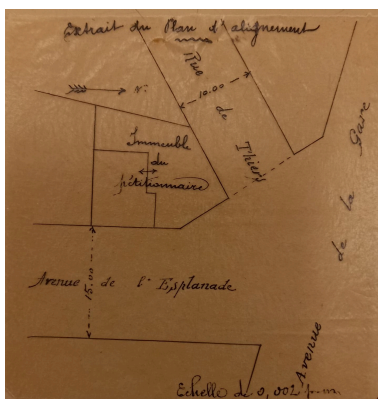 Extrait du Plan d'alignement
Rue de Thiers
10.00
N.
Immeuble
du
pétitionnaire
Avenue de la Gare
Avenue de l'Esplanade
15.00
Echelle de 0,002 p.m.